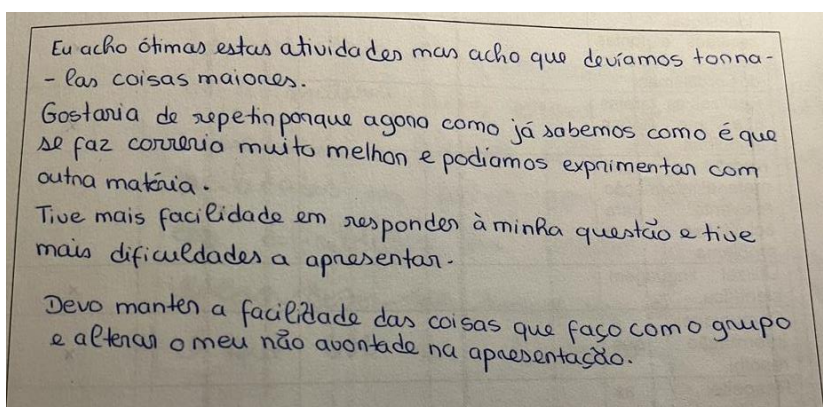 Eu acho ótimas estas atividades mas acho que devíamos torna-
- las coisas maiores.
Gostaria de repetir porque agora como já sabemos como é que
se faz correria muito melhor e podiamos exprimentar com
outra matéria.
Tive mais facilidade em responder à minha questão e tive
mais dificuldades a apresentar.
Devo manter a facilidade das coisas que faço com o grupo
e alterar o meu não avontade na apresentação.